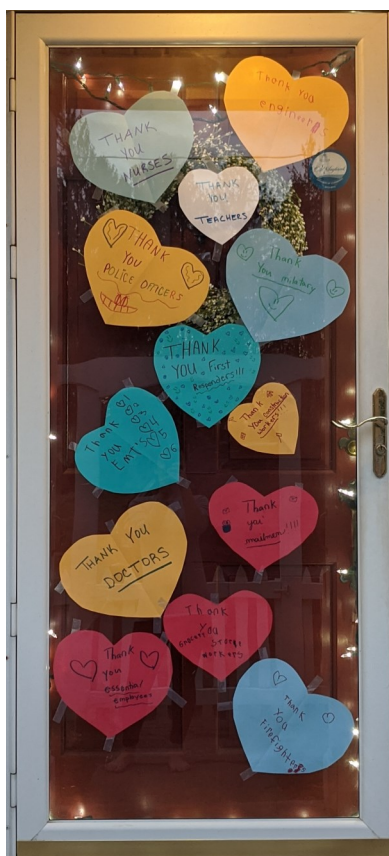 Thank You
engineers
THANK
YOU
NURSES
THANK
YOU
TEACHERS
THANK
YOU
POLICE OFFICERS
Thank
You military
THANK
YOU First
Responders!!!
Thank
You construction
workers!!!
Thank
you
EMT'S
Thank
you
mailmen!!!!
THANK YOU
DOCTORS
Thank
you
grocery store
workers
Thank
you
essential
employees
THANK
YOU
Firefighters